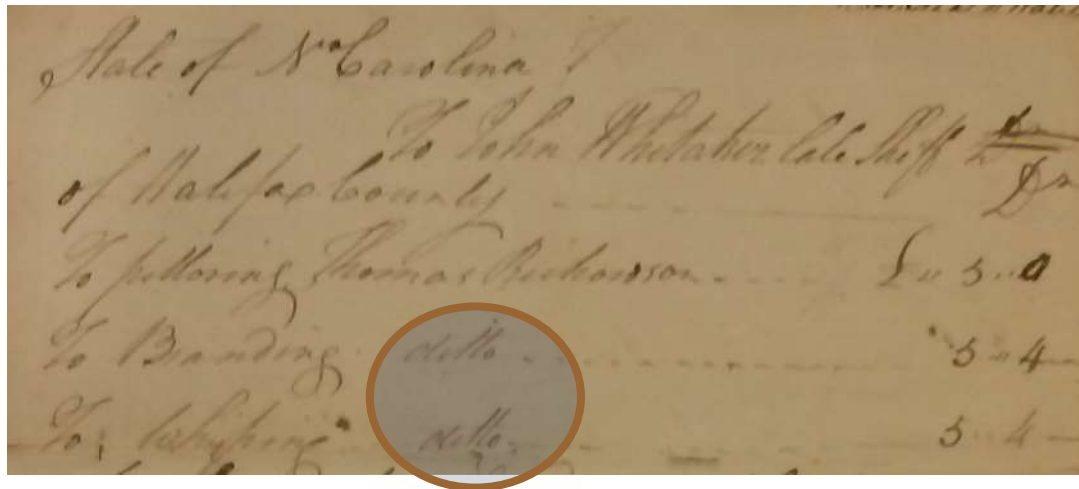 State of No Carolina
To John Whitaker late Sheff Dr
of Halifax County
To pilloring Thomas Richardson £ " 5 .. 0
To Branding ditto 5 " 4
To Whiping ditto 5 " 4